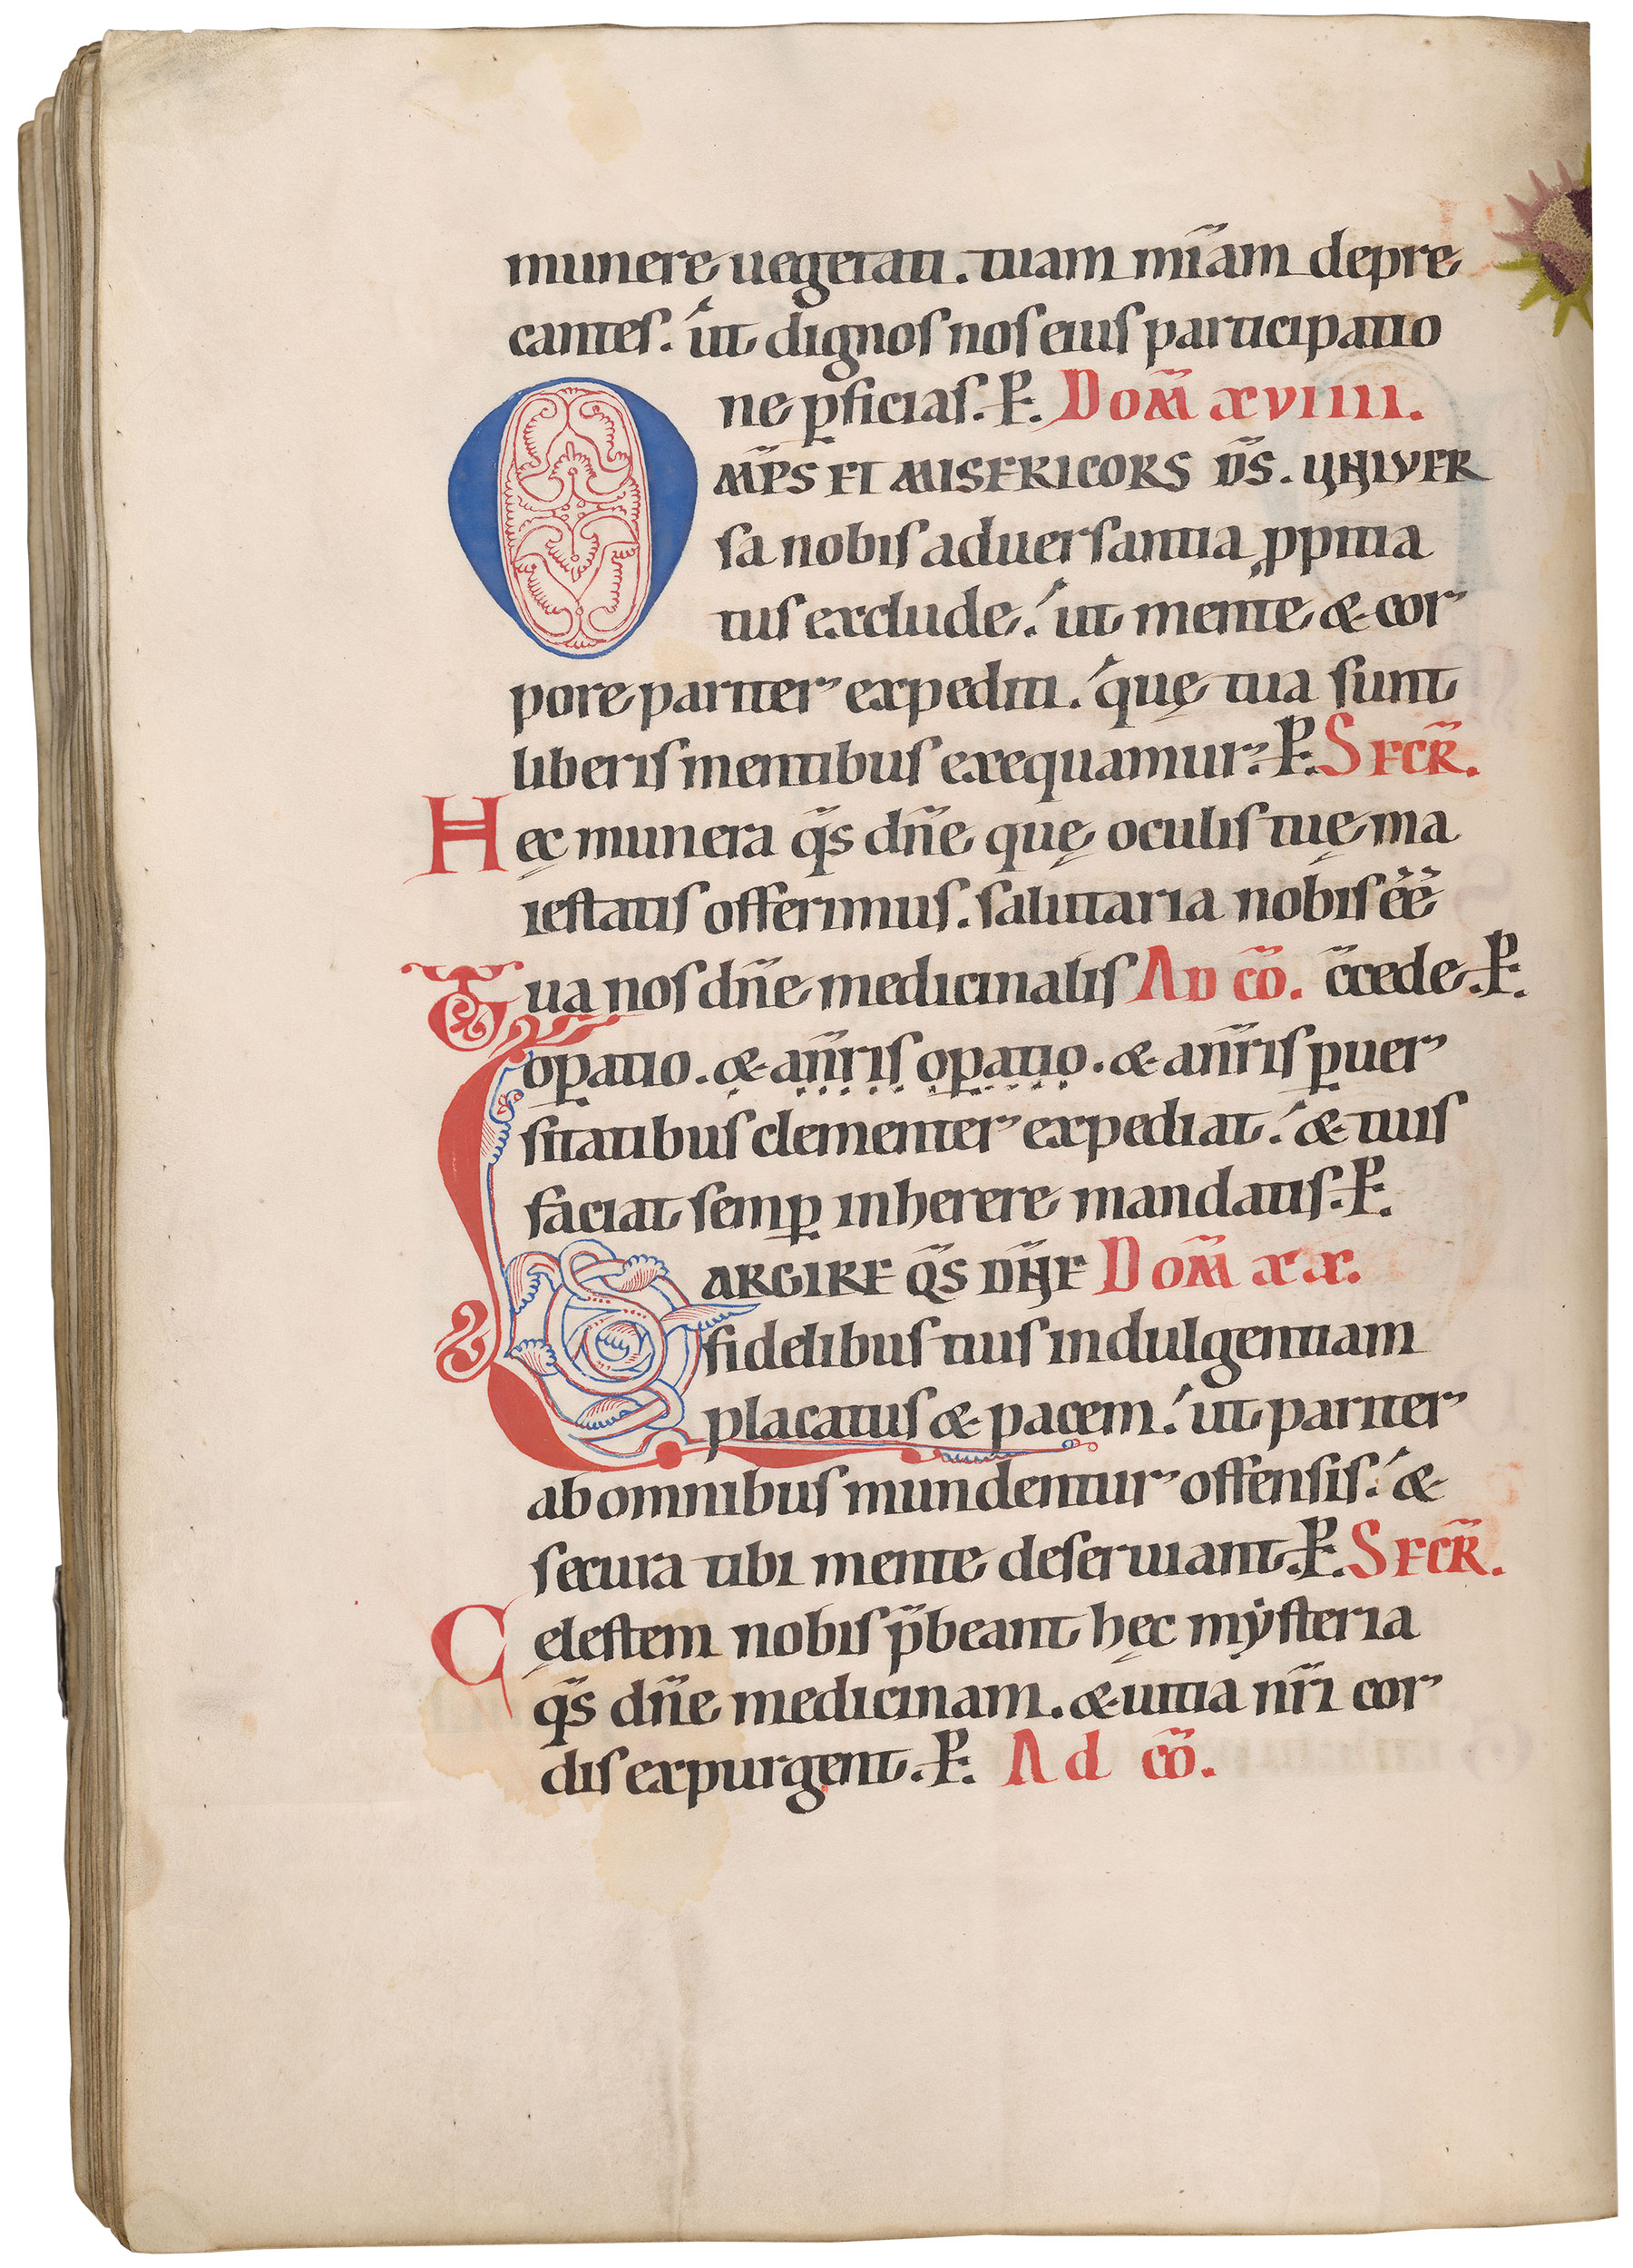 munere uegetati. tuam mĩam depre
cantes. ut dignos nos eius participatio
ne ꝑficias. P. Dom̃ xviiii.
OMP̃S ET MISERICORS D̃S. UNIVER
sa nobis aduersantia ꝓpitia
tus exclude. ut mente & cor
pore pariter expediti. quę tua sunt
liberis mentibus exequamur. P. SECR̃.
Hęc munera q̃s dñe quę oculis tuę ma
iestatis offerimus. salutaria nobis ẽẽ
Tua nos dñe medicinalis AD cõ. c̃cede. P.
oꝑatio. & añr̃is oꝑatio. & añr̃is ꝑuer
sitatibus clementer expediat. & tuis
faciat semꝑ inherere mandatis. P.
LARGIRE Q̃S DÑE Dom̃ xx.
fidelibus tuis indulgentiam
placatus & pacem. ut pariter
ab omnibus mundentur offensis. &
secura tibi mente deseruiant. P. SECR̃.
Cęlestem nobis p̃beant hęc mẏsteria
q̃s dñe medicinam. & uitia nr̃i cor
dis expurgent. P. Ad cõ.